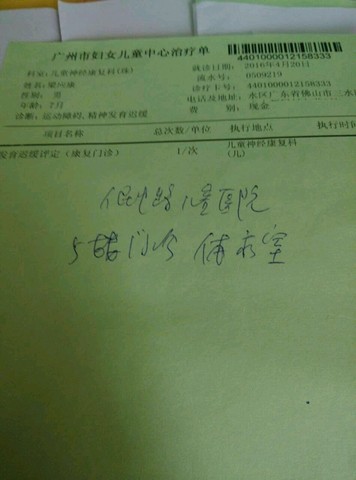 广州市妇女儿童中心治疗单
4401000012158333
科室:儿童神经康复科(珠)
就诊日期: 2016年4月20日
流水号: 0509219
诊疗卡号: 4401000012158333
性别: 男
年龄:7月
费 别: 现金
诊断:运动障碍,精神发育迟缓
项目名称 总次数/单位 执行地点 执行时间
发育迟缓评定(康复门诊) 1/次 儿童神经康复科
(儿)
儿童医院
5楼门诊 体疗室